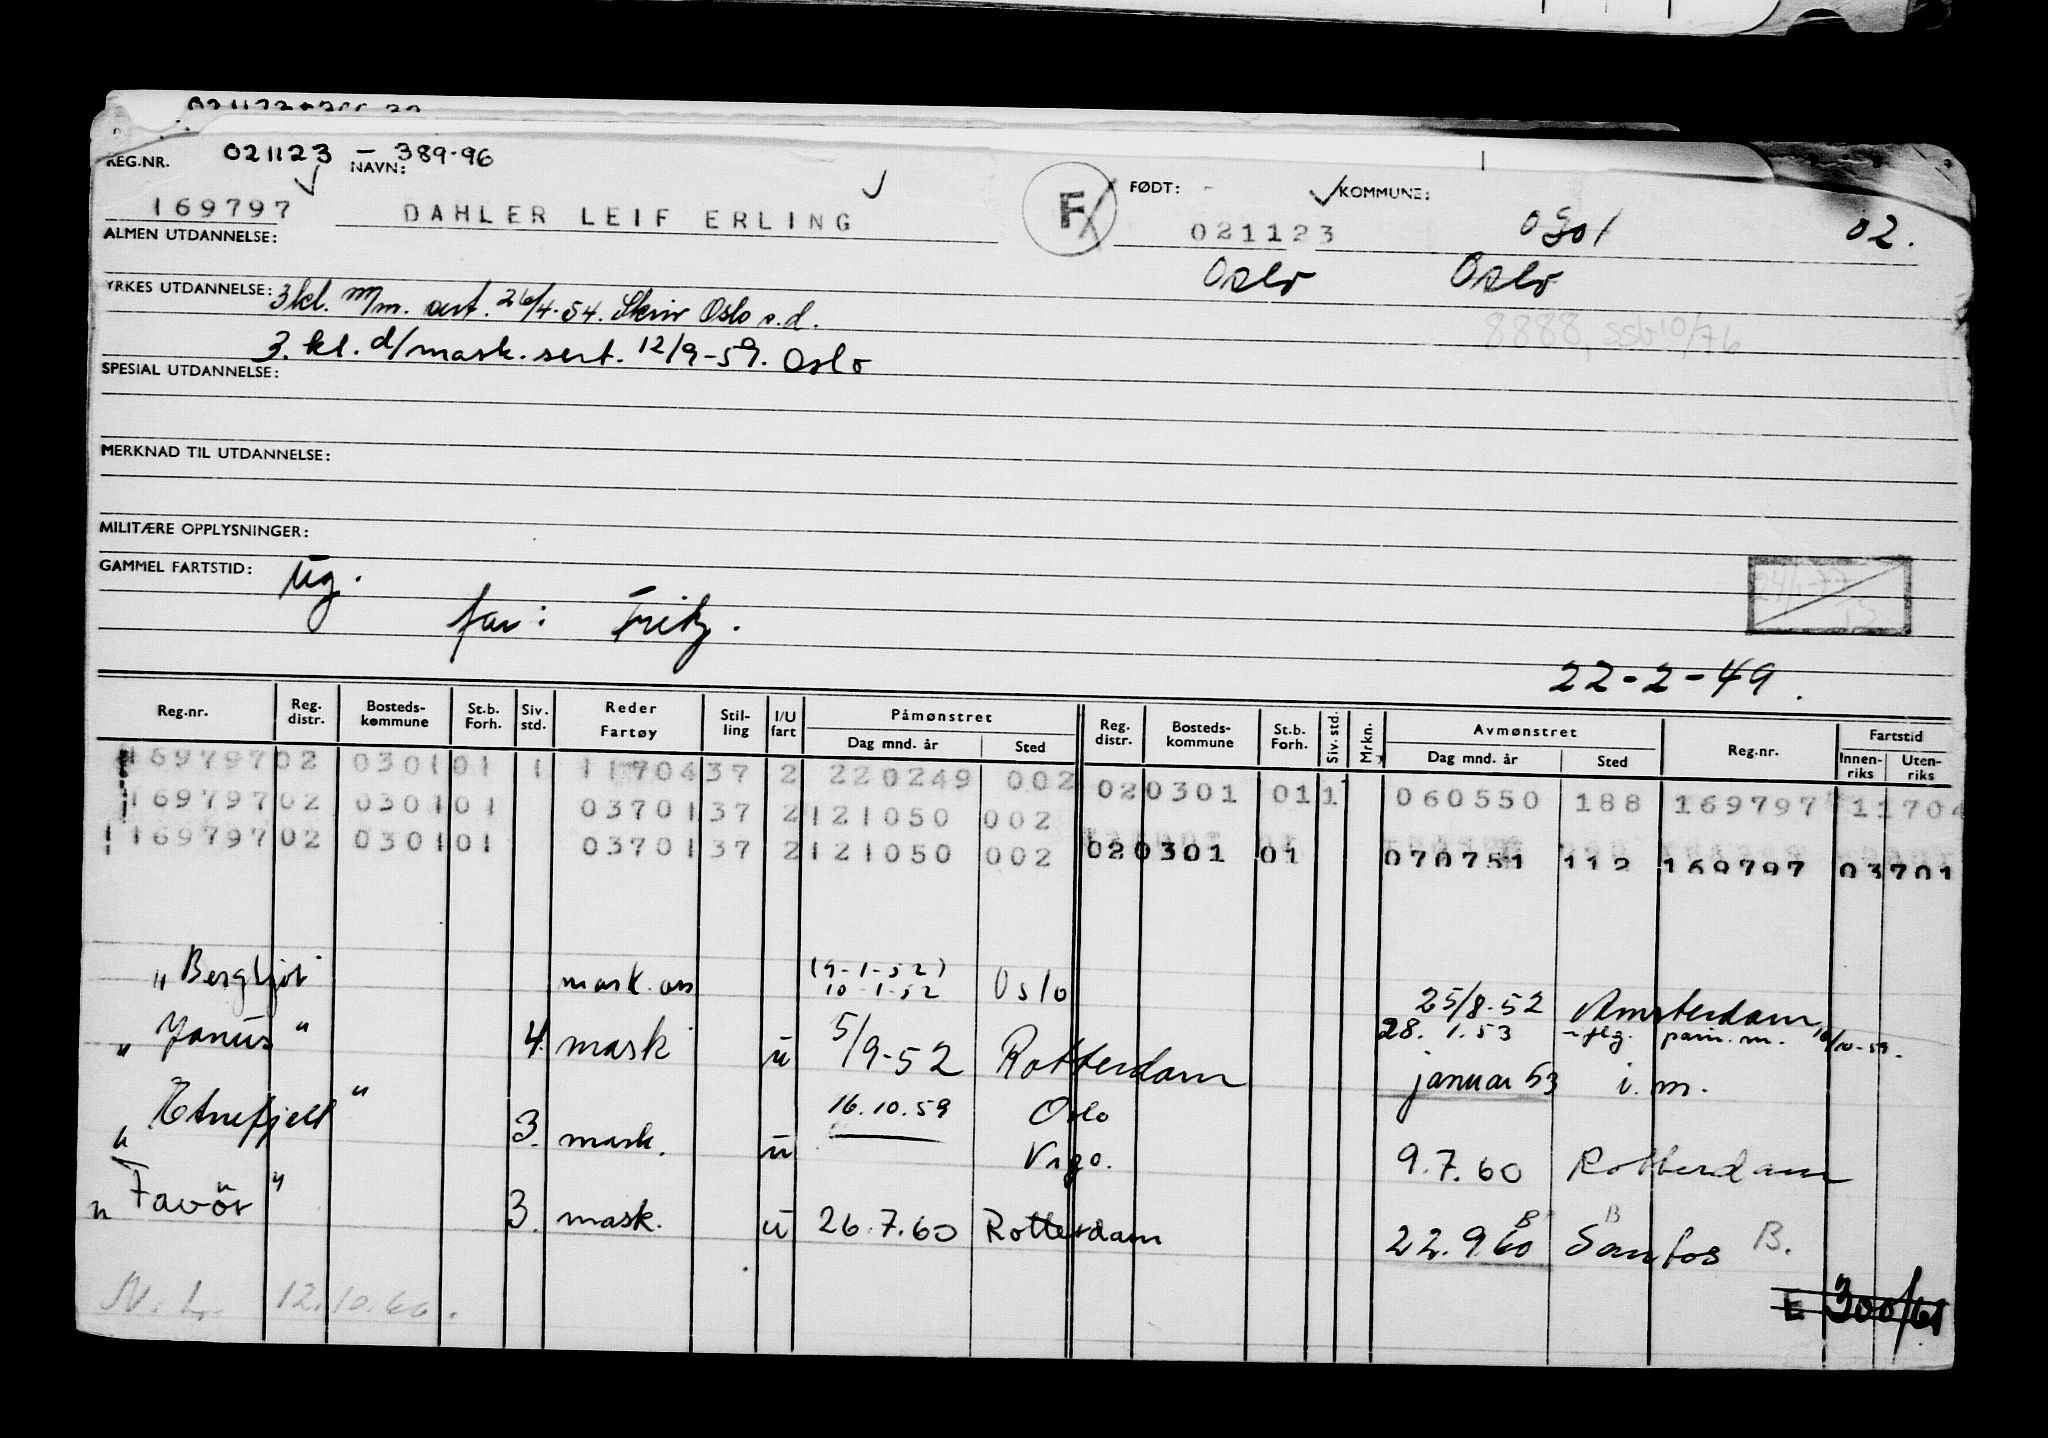 REG.NR. 021123 - 389-96
NAVN:
FØDT: KOMMUNE:
169797 DAHLER LEIF ERLING F 021123 0301 02.
Oslo Oslo
ALMEN UTDANNELSE:
YRKES UTDANNELSE: 3kl. m/m. sert. 26/4-54. Oslo s.d.
3. kl. d/mask. sert. 12/9-59. Oslo
8888, ssb 10/76
SPESIAL UTDANNELSE:
MERKNAD TIL UTDANNELSE:
MILITÆRE OPPLYSNINGER:
GAMMEL FARTSTID: Ug.
far: Fritz.
22-2-49.
Reg.nr. Reg. distr. Bosteds-kommune St.b. Forh. Siv. std. Reder Fartøy Stil-ling I/U fart Påmønstret Dag mnd. år Sted Reg. distr. Bosteds-kommune St.b. Forh. Siv. std. Mrkn. Avmønstret Dag mnd. år Sted Reg.nr. Fartstid Innen-riks Uten-riks
169797 02 0301 01 1 11704 37 2 220249 002 02 0301 01 1 060550 188 169797 11704
169797 02 0301 01 03701 37 2 121050 002
169797 02 0301 01 03701 37 2 121050 002 02 0301 01 070751 112 169797 03701
"Bergljot" mask. ass (9-1-52) 10-1-52 Oslo 25/8-52 Amsterdam
"Janus" 4. mask u 5/9-52 Rotterdam 28. 1.53 - flg. påm. m. 16/10-59.
januar 53 i. m.
"Etnefjell" 3. mask. u 16.10.59 Oslo
Vigo. 9.7.60 Rotterdam
"Favör" 3. mask. u 26.7.60 Rotterdam 22.9.60 Santos B.
N. L. 12.10.60.
E 300/61